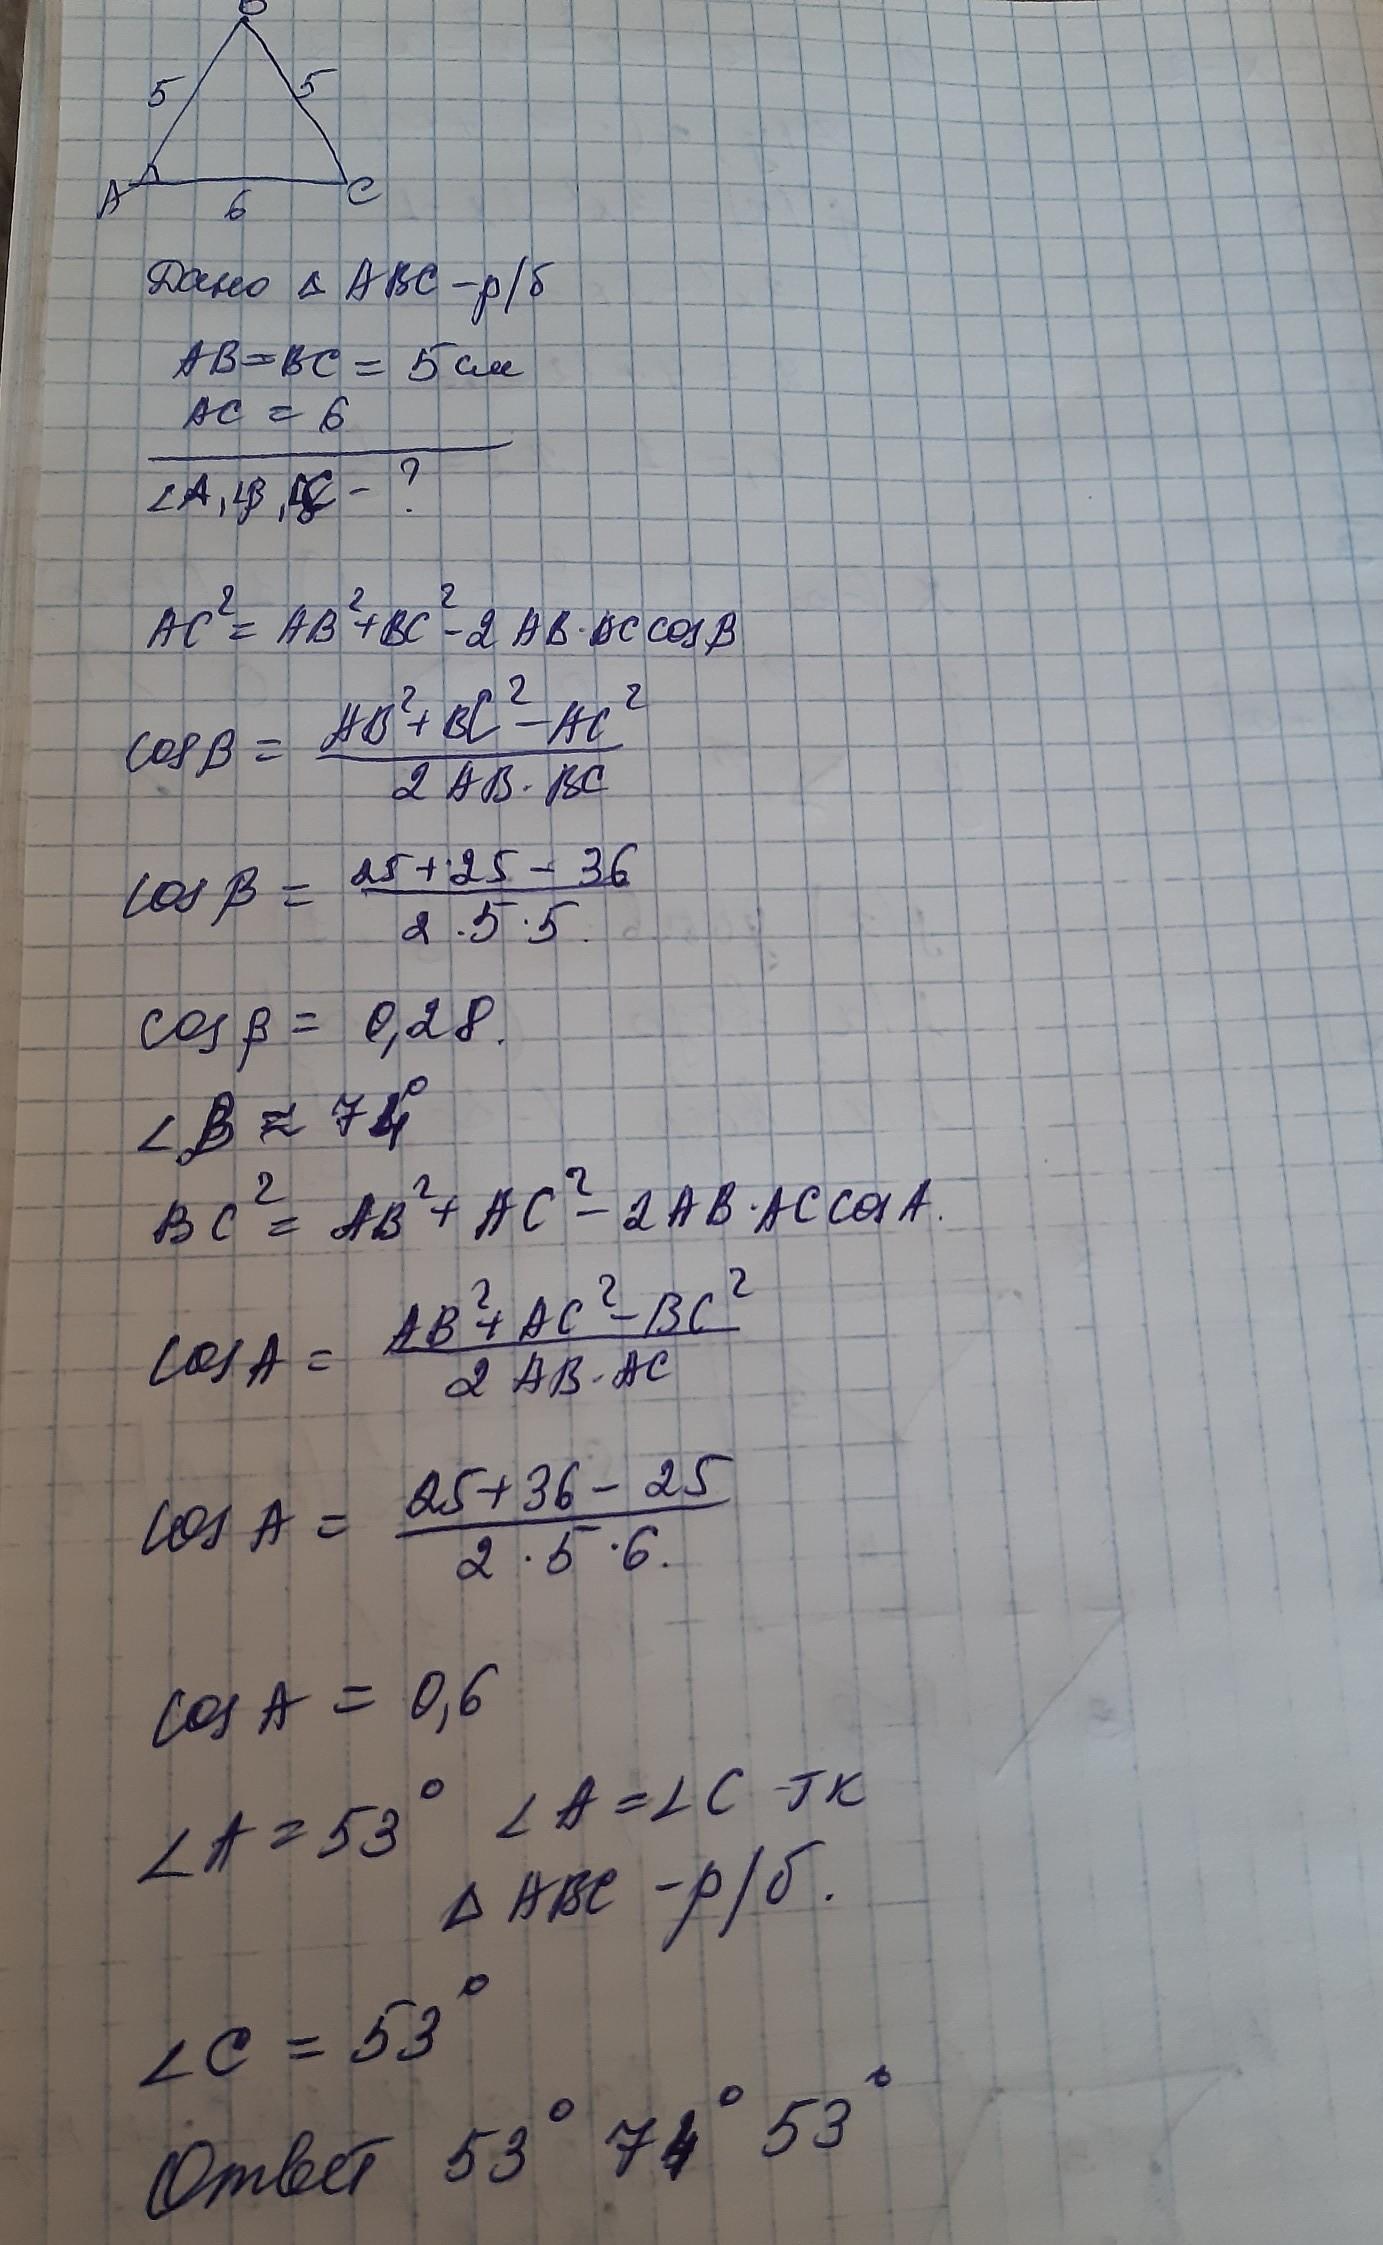 5 5
A 6 C
Дано △ ABC - р/б
AB = BC = 5 см
AC = 6
∠A, ∠B, ∠C - ?
AC² = AB² + BC² - 2 AB · BC cos B
cos B = (AB² + BC² - AC²) / (2 AB · BC)
cos B = (25 + 25 - 36) / (2 · 5 · 5.)
cos B = 0,28.
∠B ≈ 74°
BC² = AB² + AC² - 2 AB · AC cos A.
cos A = (AB² + AC² - BC²) / (2 AB · AC)
cos A = (25 + 36 - 25) / (2 · 5 · 6.)
cos A = 0,6
∠A = 53° ∠A = ∠C тк
△ ABC - р/б.
∠C = 53°
Ответ 53° 74° 53°